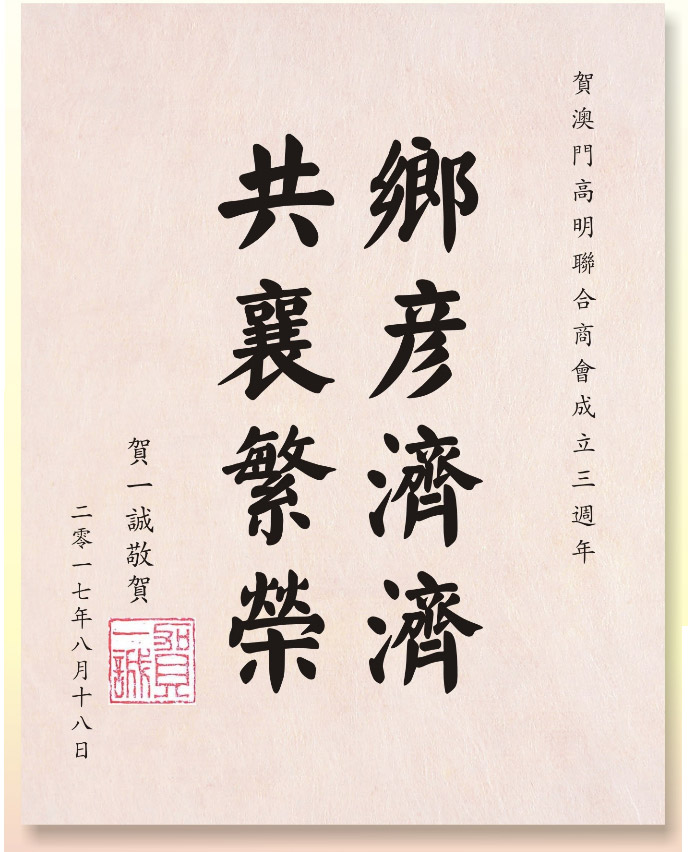 賀澳門高明聯合商會成立三週年
鄉彥濟濟
共襄繁榮
賀一誠敬賀
賀一誠
二零一七年八月十八日